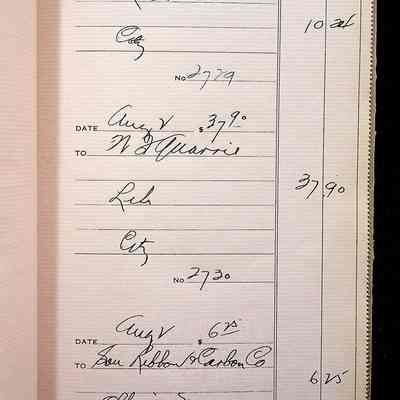 City
No 2729
DATE Aug 2 $ 37.90
TO W F Quarrie
37.90
Lib
City
No 2730
DATE Aug 2 $ 6 25
TO Sou Ribbon & Carbon Co
6 25